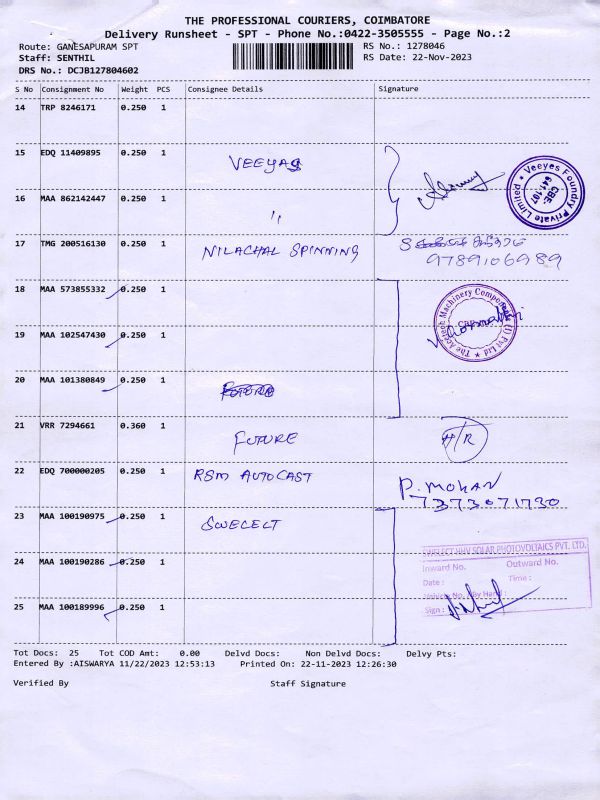 THE PROFESSIONAL COURIERS, COIMBATORE
Delivery Runsheet - SPT - Phone No.:0422-3505555 - Page No.:2
Route: GANESAPURAM SPT
RS No.: 1278046
Staff: SENTHIL
RS Date: 22-Nov-2023
DRS No.: DCJB127804602
S No Consignment No Weight PCS Consignee Details Signature
14 TRP 8246171 0.250 1
15 EDQ 11409895 0.250 1 VEEYAS
Veeyes Foundry Private Limited * CBE-641 107
16 MAA 862142447 0.250 1 "
17 TMG 200516130 0.250 1 NILACHAL SPINNING
9789106989
18 MAA 573855332 0.250 1
The Acetech Machinery Components (I) Pvt Ltd *
19 MAA 102547430 0.250 1
20 MAA 101380849 0.250 1
21 VRR 7294661 0.360 1 FUTURE H/R
22 EDQ 700000205 0.250 1 RSM AUTOCAST P. MOHAN
7373071730
23 MAA 100190975 1 0.250 SWELECT
SWELECT HHV SOLAR PHOTOVOLTAICS PVT. LTD.
24 MAA 100190286 0.250 1
Inward No. Outward No.
Date : Time :
25 MAA 100189996 0.250 1
Sign :
Tot Docs: 25 Tot COD Amt: 0.00 Delvd Docs: Non Delvd Docs: Delvy Pts:
Entered By :AISWARYA 11/22/2023 12:53:13 Printed On: 22-11-2023 12:26:30
Verified By Staff Signature